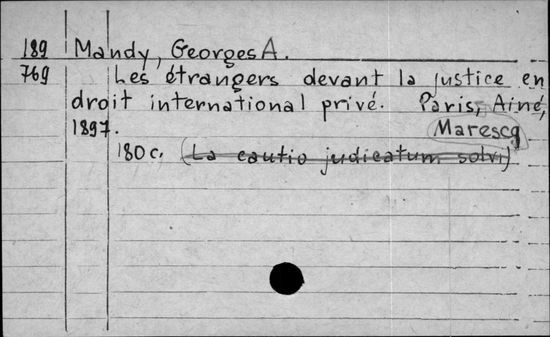 189 Mandy, Georges A.
769 Les étrangers devant la justice en
droit international privé. Paris, Ainé,
1897. Marescq
180 c. (La cautio judicatum solvi)